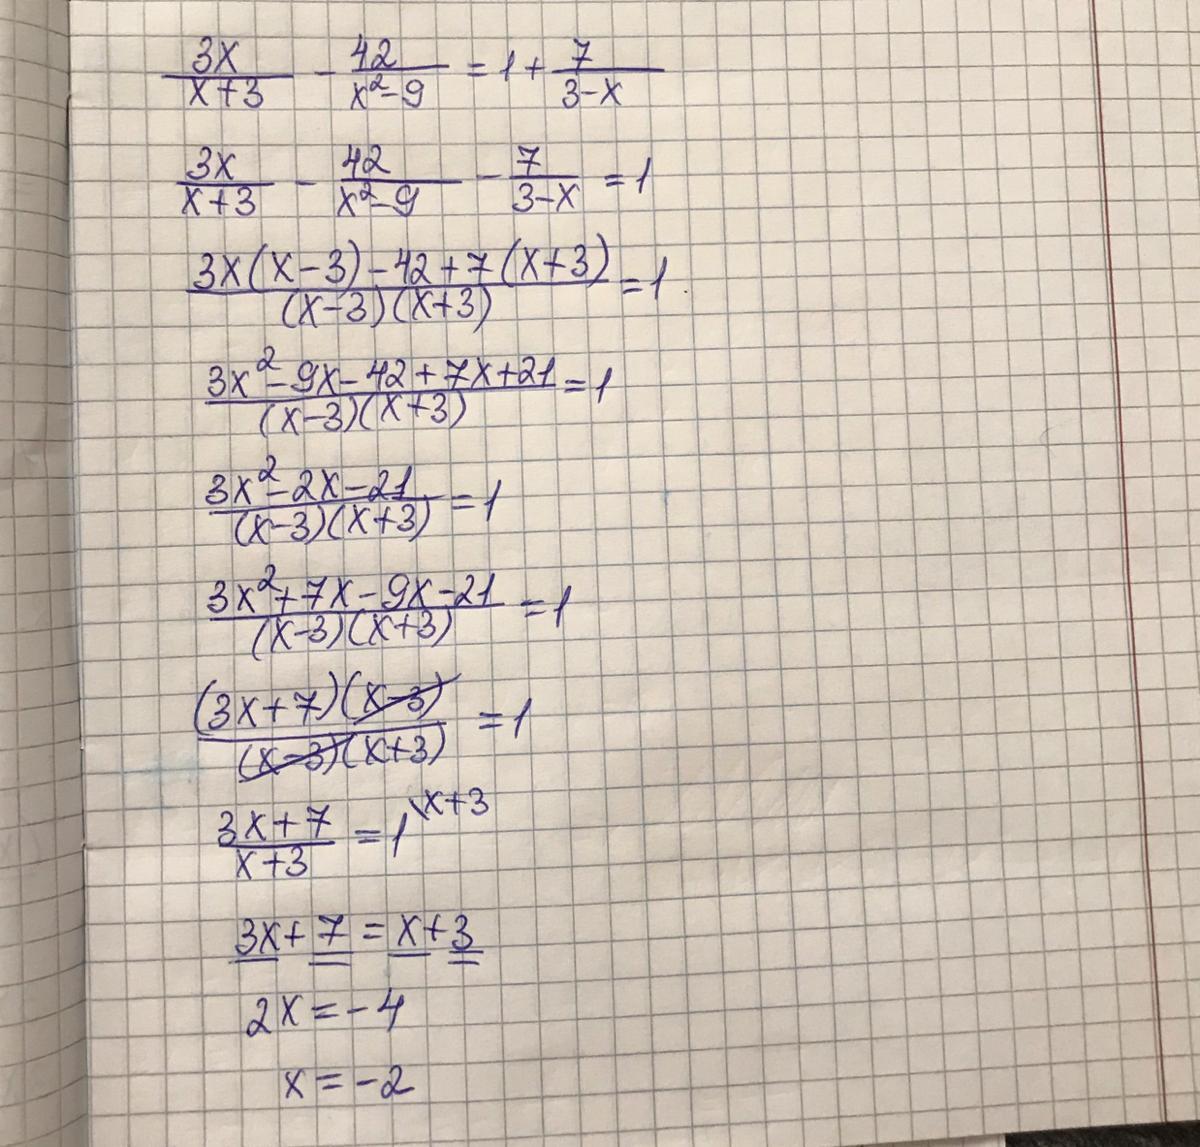 3x/(x+3) - 42/(x²-9) = 1 + 7/(3-x)
3x/(x+3) - 42/(x²-9) - 7/(3-x) = 1
(3x(x-3)-42+7(x+3))/((x-3)(x+3)) = 1
(3x²-9x-42+7x+21)/((x-3)(x+3)) = 1
(3x²-2x-21)/((x-3)(x+3)) = 1
(3x²+7x-9x-21)/((x-3)(x+3)) = 1
((3x+7)(x-3))/((x-3)(x+3)) = 1
(3x+7)/(x+3) = 1 \x+3
3x+7 = x+3
2x = -4
x = -2